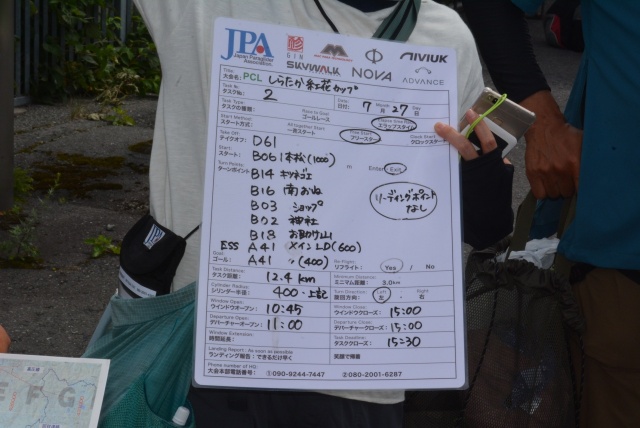 JPA
Japan Paraglider Association
GIN
NIVIUK
SKYWALK
NOVA
ADVANCE
Title: 大会名: PCL しらたか紅花カップ
Task No. タスクNo: 2
Date 日付: 7 Month 月 27 Day 日
Task Type: タスクの種類: Race to Goal ゴールレース Elapse time エラップスタイム
Start Method: スタート方式: All together Start 一斉スタート Free Start フリースタート Clock Start クロックスタート
Take Off: テイクオフ: D61
Start: スタート: B06 1本松(1000) Enter / Exit
Turn Points: ターンポイント B14 キツネゴエ
B16 南おね
B03 ショップ
B02 神社
B18 お助け山
リーディングポイント なし
ESS A41 メインLD(600)
Goal: ゴール: A41 〃(400)
Re-Flight: リフライト: Yes / No
Task Distance: タスク距離: 12.4 km
Minimum Distance: ミニマム距離: 3.0km
Cylinder Radius: シリンダー半径: 400
Turn Direction: 旋回方向: Left 左 Right 右
Window Open: ウインドウオープン: 10:45
Window Close: ウインドウクローズ: 15:00
Departure Open: デパーチャーオープン: 11:00
Departure Close: デパーチャクローズ: 15:00
Window Extension: 時間延長:
Task Deadline: タスククローズ: 15:30
Landing Report: As soon as possible ランディング報告: できるだけ早く 笑顔で帰着
Phone number of HQ: 大会本部電話番号: ①090-9244-7447 ②080-2001-6287
E F G